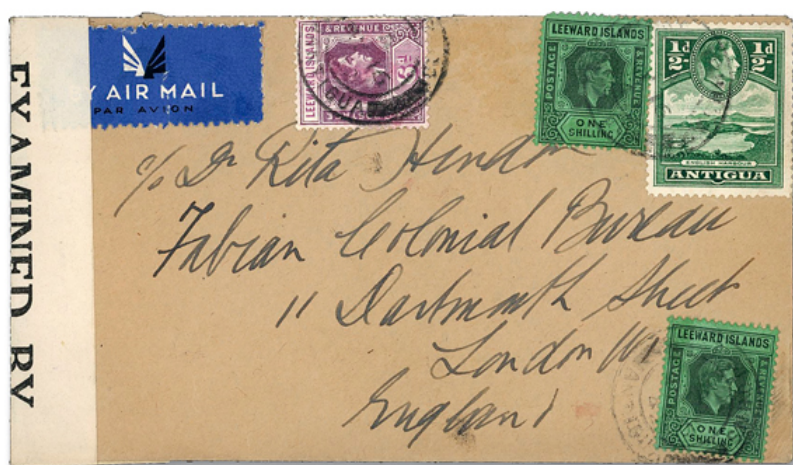 EXAMINED BY
Y AIR MAIL
PAR AVION
LEEWARD ISLANDS
& REVENUE
6d
LEEWARD ISLANDS
POSTAGE
& REVENUE
ONE
SHILLING
1/2d 1/2d
ENGLISH HARBOUR
ANTIGUA
c/o Dr Rita Hinden
Fabian Colonial Bureau
11 Dartmouth Street
London
England
LEEWARD ISLANDS
POSTAGE
& REVENUE
ONE
SHILLING